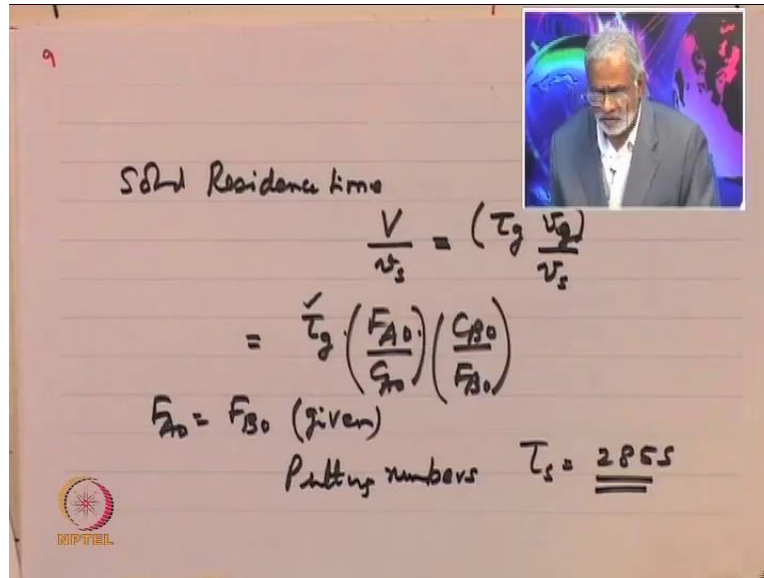 9
Solid Residence time
V/v_s = (τ_g v_g/v_s)
= τ_g · (F_A0/C_A0) (C_B0/F_B0)
F_A0 = F_B0 (given)
Putting numbers τ_s = 285 s
NPTEL